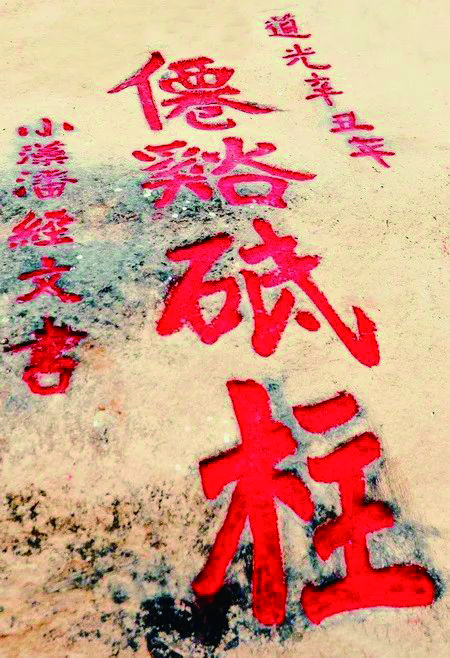 道光辛丑年
僊谿砥柱
小漢潘經文書